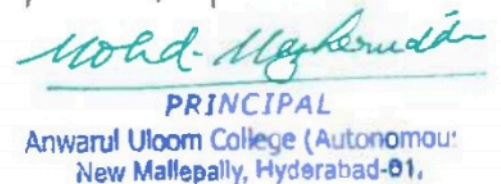 Mohd. Mazheruddin
PRINCIPAL
Anwarul Uloom College (Autonomou:
New Mallepally, Hyderabad-01,